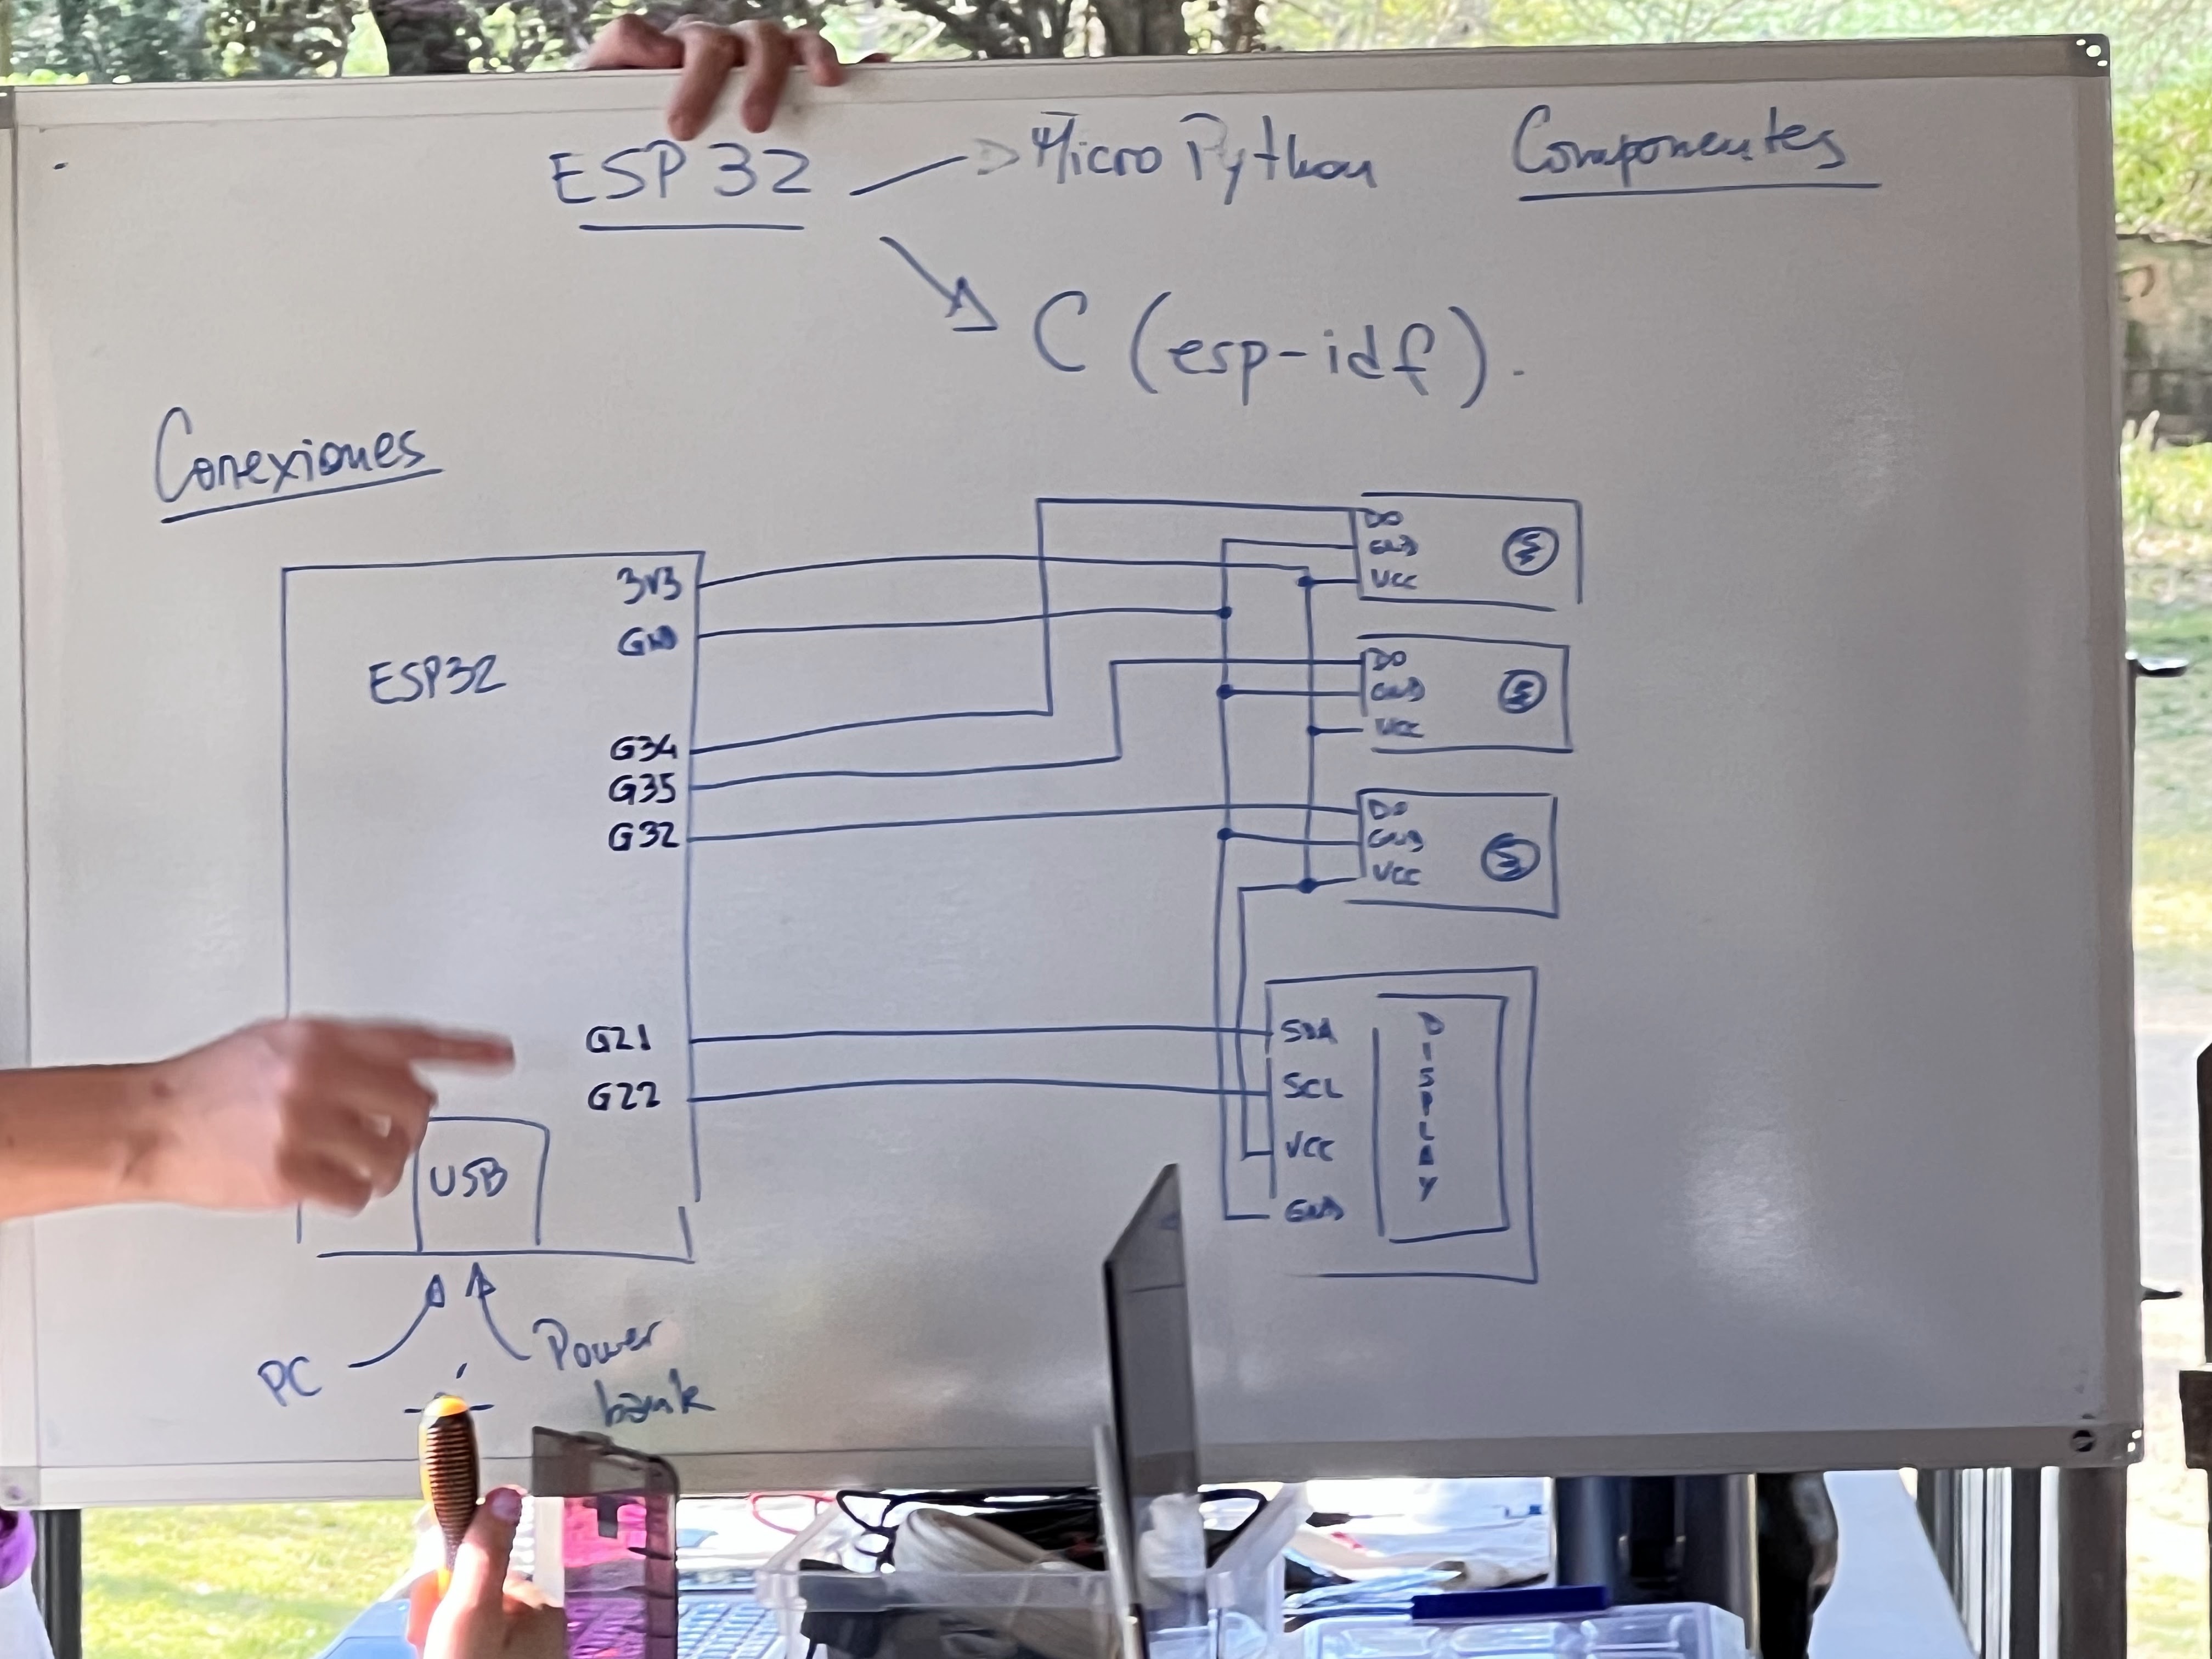 ESP32
MicroPython
Componentes
C (esp-idf).
Conexiones
ESP32
3V3
GND
G34
G35
G32
G21
G22
USB
PC
Power
bank
DO
GND
VCC
DO
GND
VCC
DO
GND
VCC
SDA
SCL
VCC
GND
DISPLAY